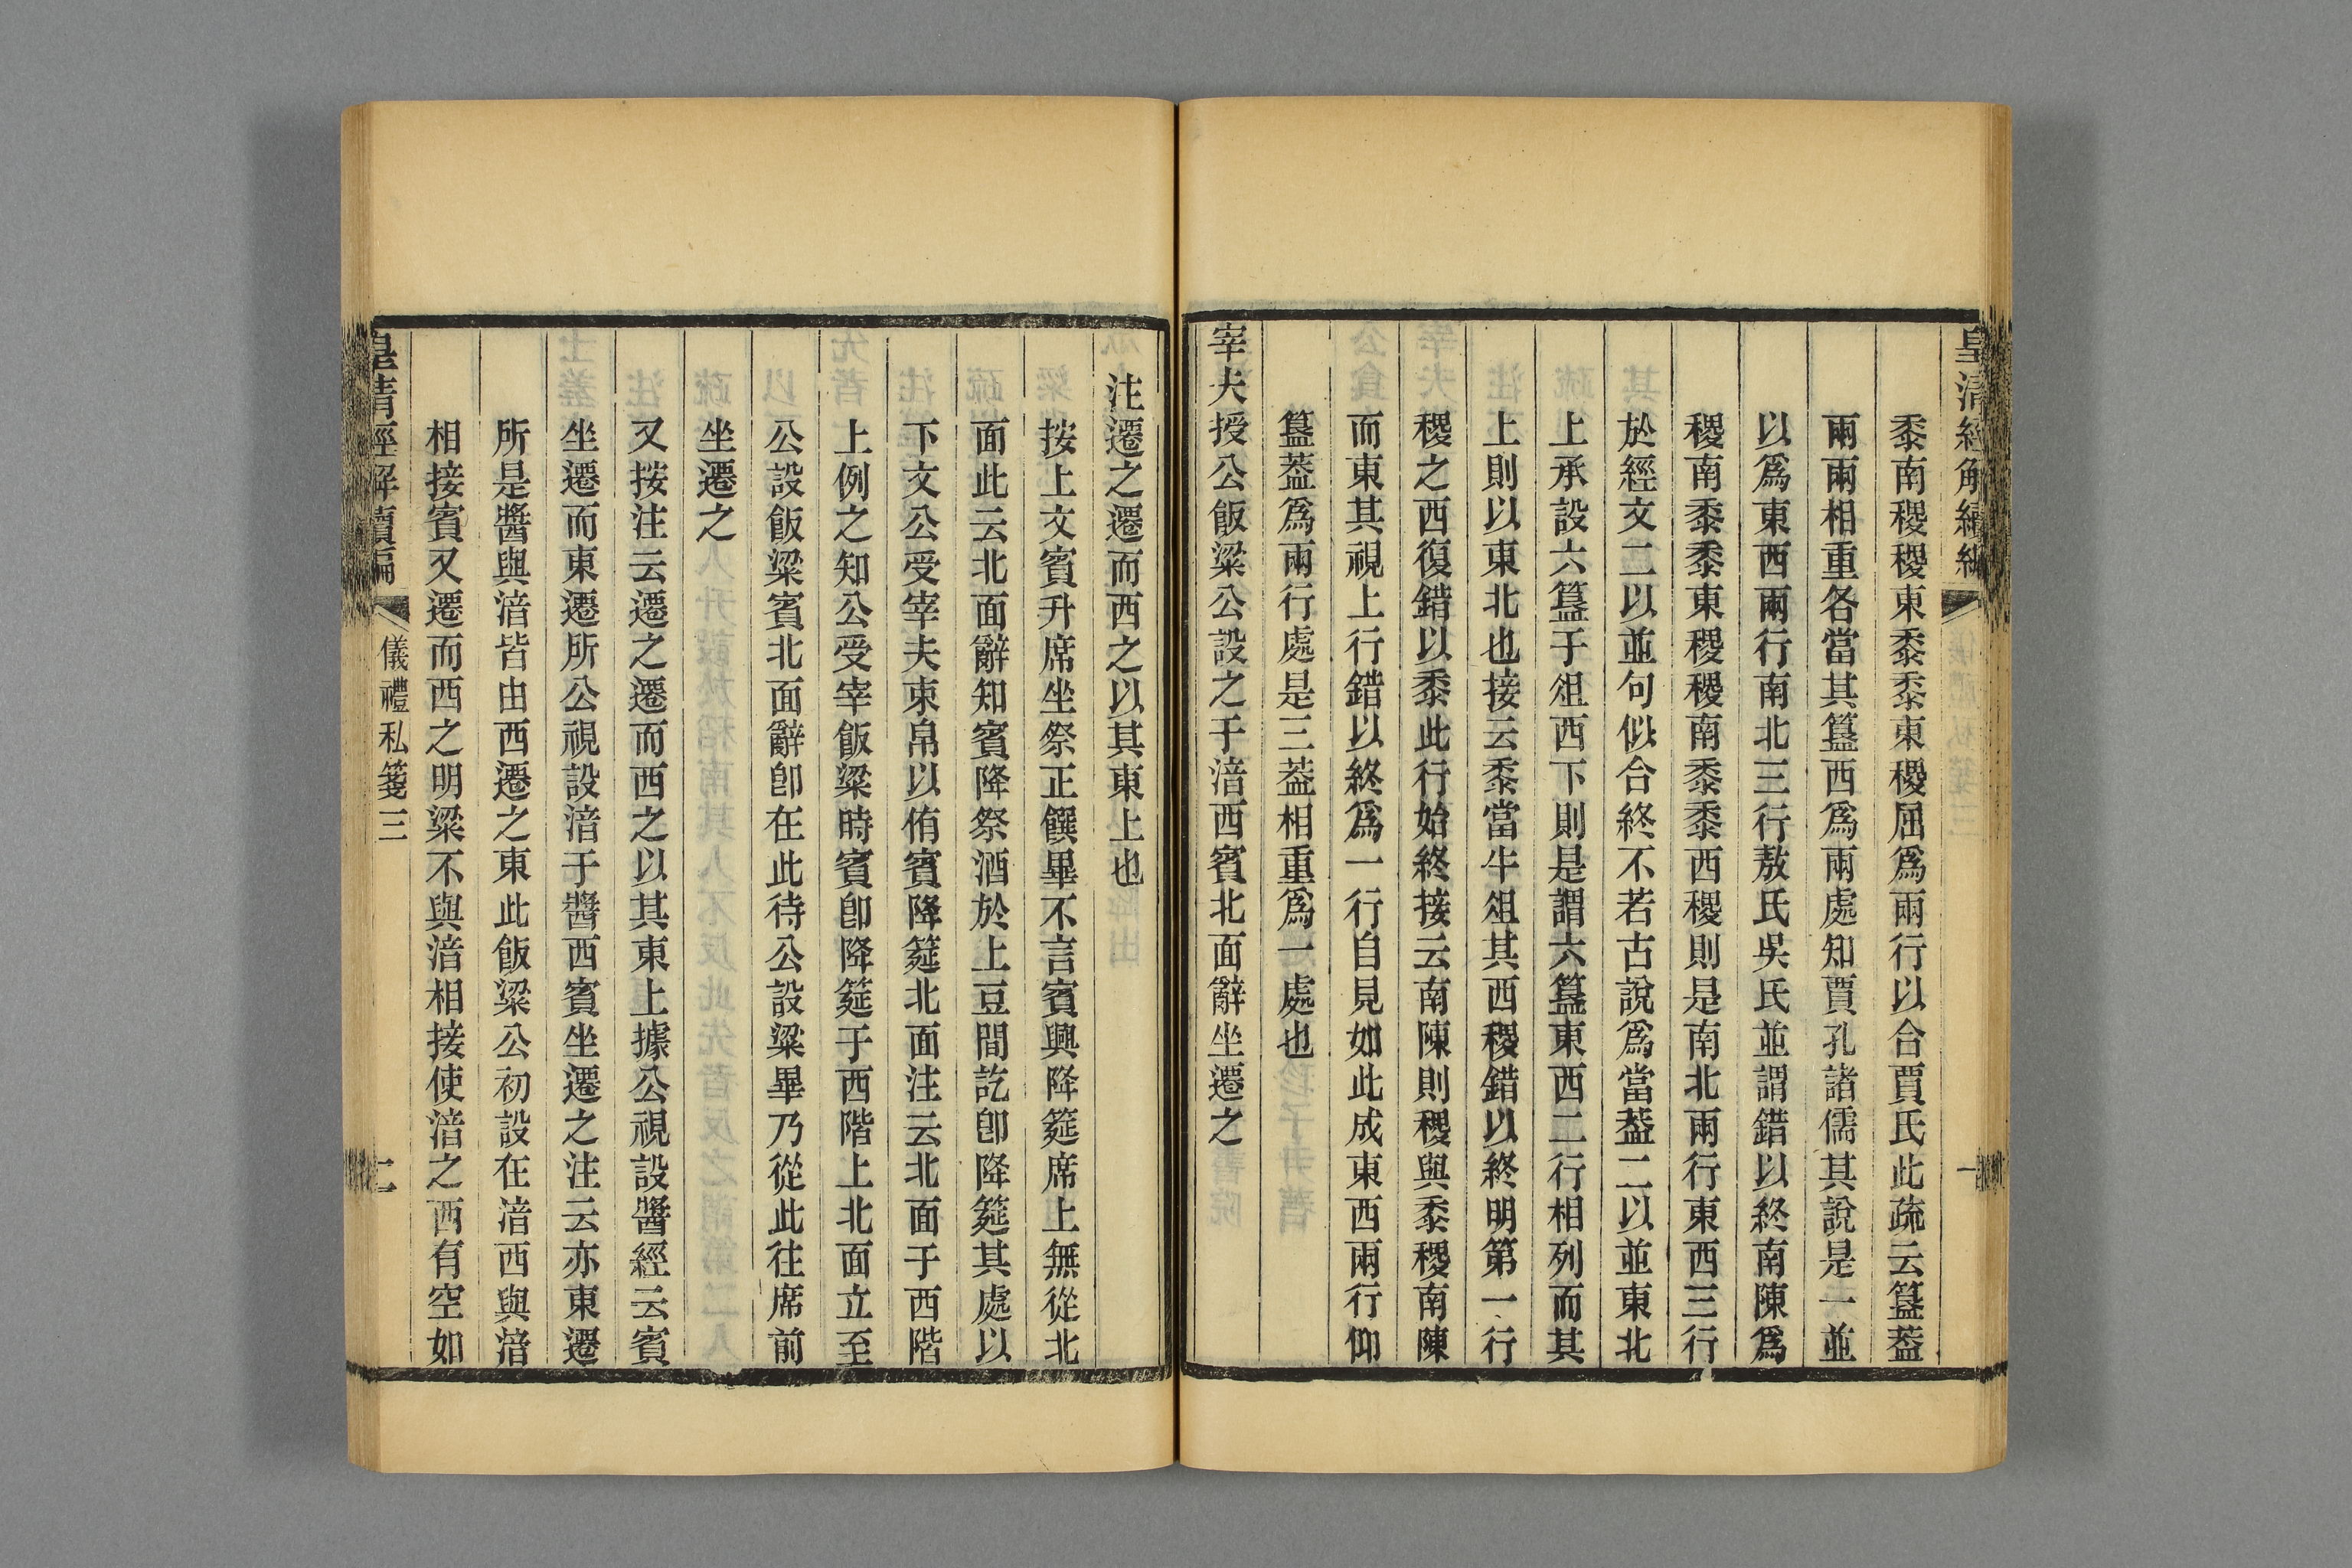 皇清經解續編
黍南稷稷東黍黍東稷屈爲兩行以合賈氏此疏云簋葢
兩兩相重各當其簋西爲兩處知賈孔諸儒其說是一並
以爲東西兩行南北三行敖氏吳氏並謂錯以終南陳爲
稷南黍黍東稷稷南黍黍西稷則是南北兩行東西三行
於經文二以並句似合終不若古說爲當葢二以並東北
上承設六簋于俎西下則是謂六簋東西二行相列而其
上則以東北也接云黍當牛俎其西稷錯以終明第一行
稷之西復錯以黍此行始終接云南陳則稷與黍稷南陳
而東其視上行錯以終爲一行自見如此成東西兩行仰
簋葢爲兩行處是三葢相重爲一處也
宰夫授公飯粱公設之于湆西賓北面辭坐遷之
注遷之遷而西之以其東上也
按上文賓升席坐祭正饌畢不言賓興降筵席上無從北
面此云北面辭知賓降祭酒於上豆間訖卽降筵其處以
下文公受宰夫束帛以侑賓降筵北面注云北面于西階
上例之知公受宰飯粱時賓卽降筵于西階上北面立至
公設飯粱賓北面辭卽在此待公設粱畢乃從此往席前
坐遷之
又按注云遷之遷而西之以其東上據公視設醬經云賓
坐遷而東遷所公視設湆于醬西賓坐遷之注云亦東遷
所是醬與湆皆由西遷之東此飯粱公初設在湆西與湆
相接賓又遷而西之明粱不與湆相接使湆之西有空如
皇清經解續編
儀禮私箋三